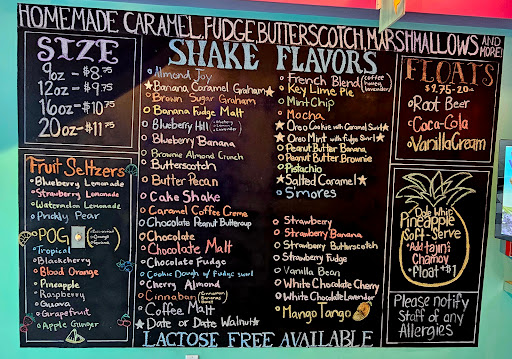 HOMEMADE CARAMEL, FUDGE, BUTTERSCOTCH, MARSHMALLOWS AND MORE!
SIZE
9oz - $8.75
12oz - $9.75
16oz - $10.75
20oz - $11.75
Fruit Seltzers
Blueberry Lemonade
Strawberry Lemonade
Watermelon Lemonade
Prickly Pear
POG
Tropical
Blackcherry
Blood Orange
Pineapple
Raspberry
Guava
Grapefruit
Apple Ginger
SHAKE FLAVORS
Almond Joy
Banana Caramel Graham
Brown Sugar Graham
Banana Fudge Malt
Blueberry Hill
Blueberry Banana
Brownie Almond Crunch
Butterscotch
Butter Pecan
Cake Shake
Caramel Coffee Creme
Chocolate Peanut Buttercup
Chocolate
Chocolate Malt
Chocolate Fudge
Cookie Dough w/ Fudge swirl
Cherry Almond
Cinnaban
Coffee Malt
Date or Date Walnut
French Blend (coffee honey lavender)
Key Lime Pie
Mint Chip
Mocha
Oreo Cookie with Caramel Swirl
Oreo Mint with Fudge Swirl
Peanut Butter Banana
Peanut Butter Brownie
Pistachio
Salted Caramel
S'mores
Strawberry
Strawberry Banana
Strawberry Butterscotch
Strawberry Fudge
Vanilla Bean
White Chocolate Cherry
White Chocolate Lavender
Mango Tango
LACTOSE FREE AVAILABLE
FLOATS
$9.75-20oz
Root Beer
Coca-Cola
Vanilla Cream
Dole Whip
Pineapple
Soft-Serve
Add tajin &
Chamoy
Float +$1
Please notify
Staff of any
Allergies